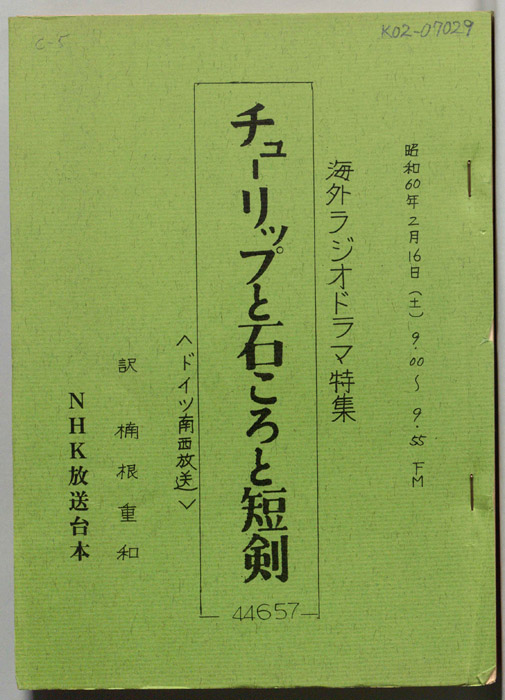 C-5
K02-07029
昭和60年2月16日(土) 9.00〜9.55 FM
海外ラジオドラマ特集
チューリップと石ころと短剣
44657
〈ドイツ南西放送〉
訳 楠根重和
NHK放送台本